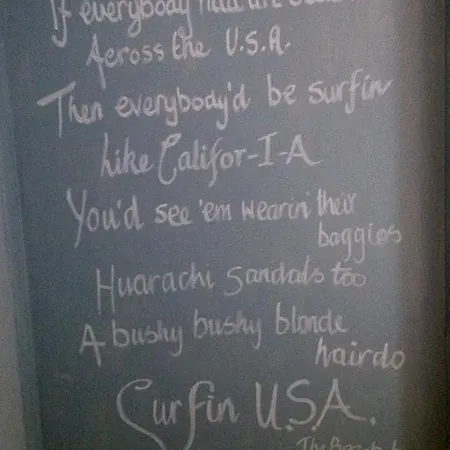 If everybody had an
Across the U.S.A.
Then everybody'd be surfin
like Califor-I-A
You'd see 'em wearin' their
baggies
Huarachi Sandals too
A bushy bushy blonde
hairdo
Surfin U.S.A.
The